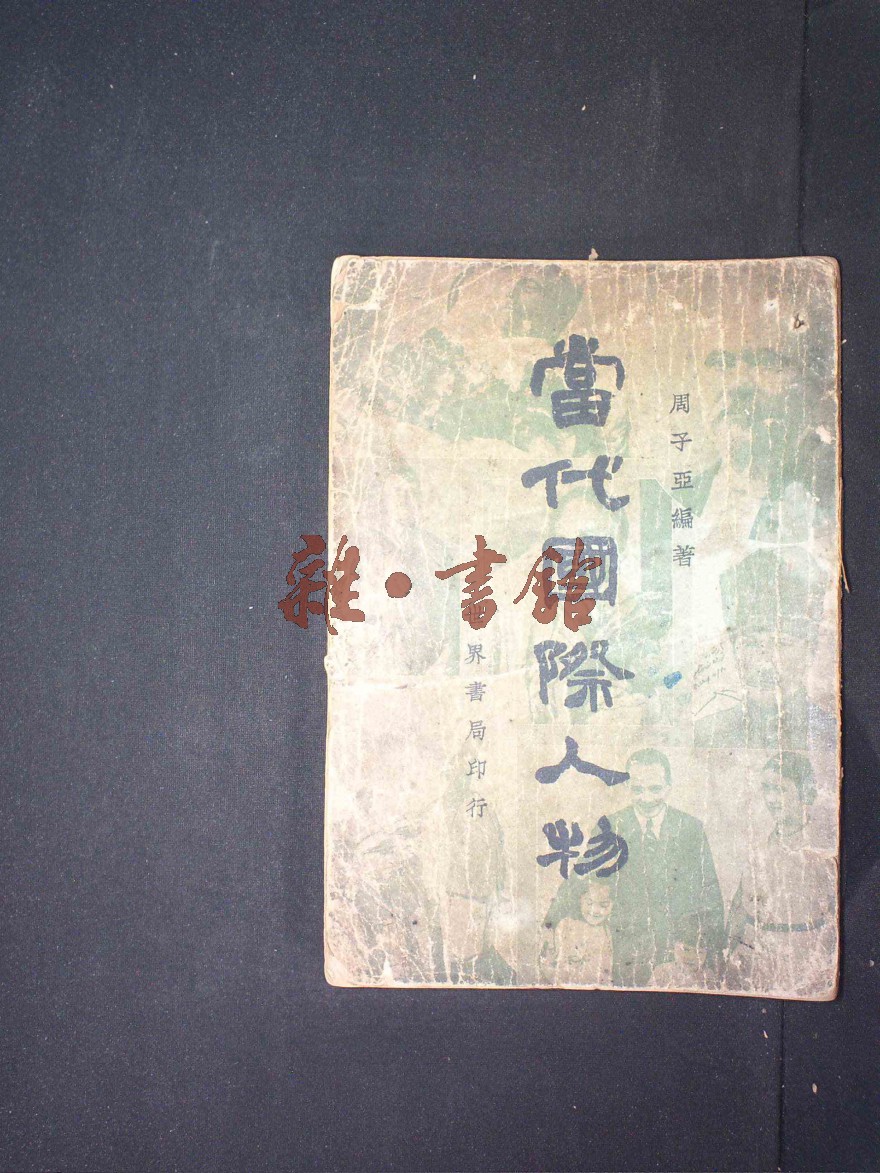 周子亞編著
當代國際人物
界書局印行
雜·書館